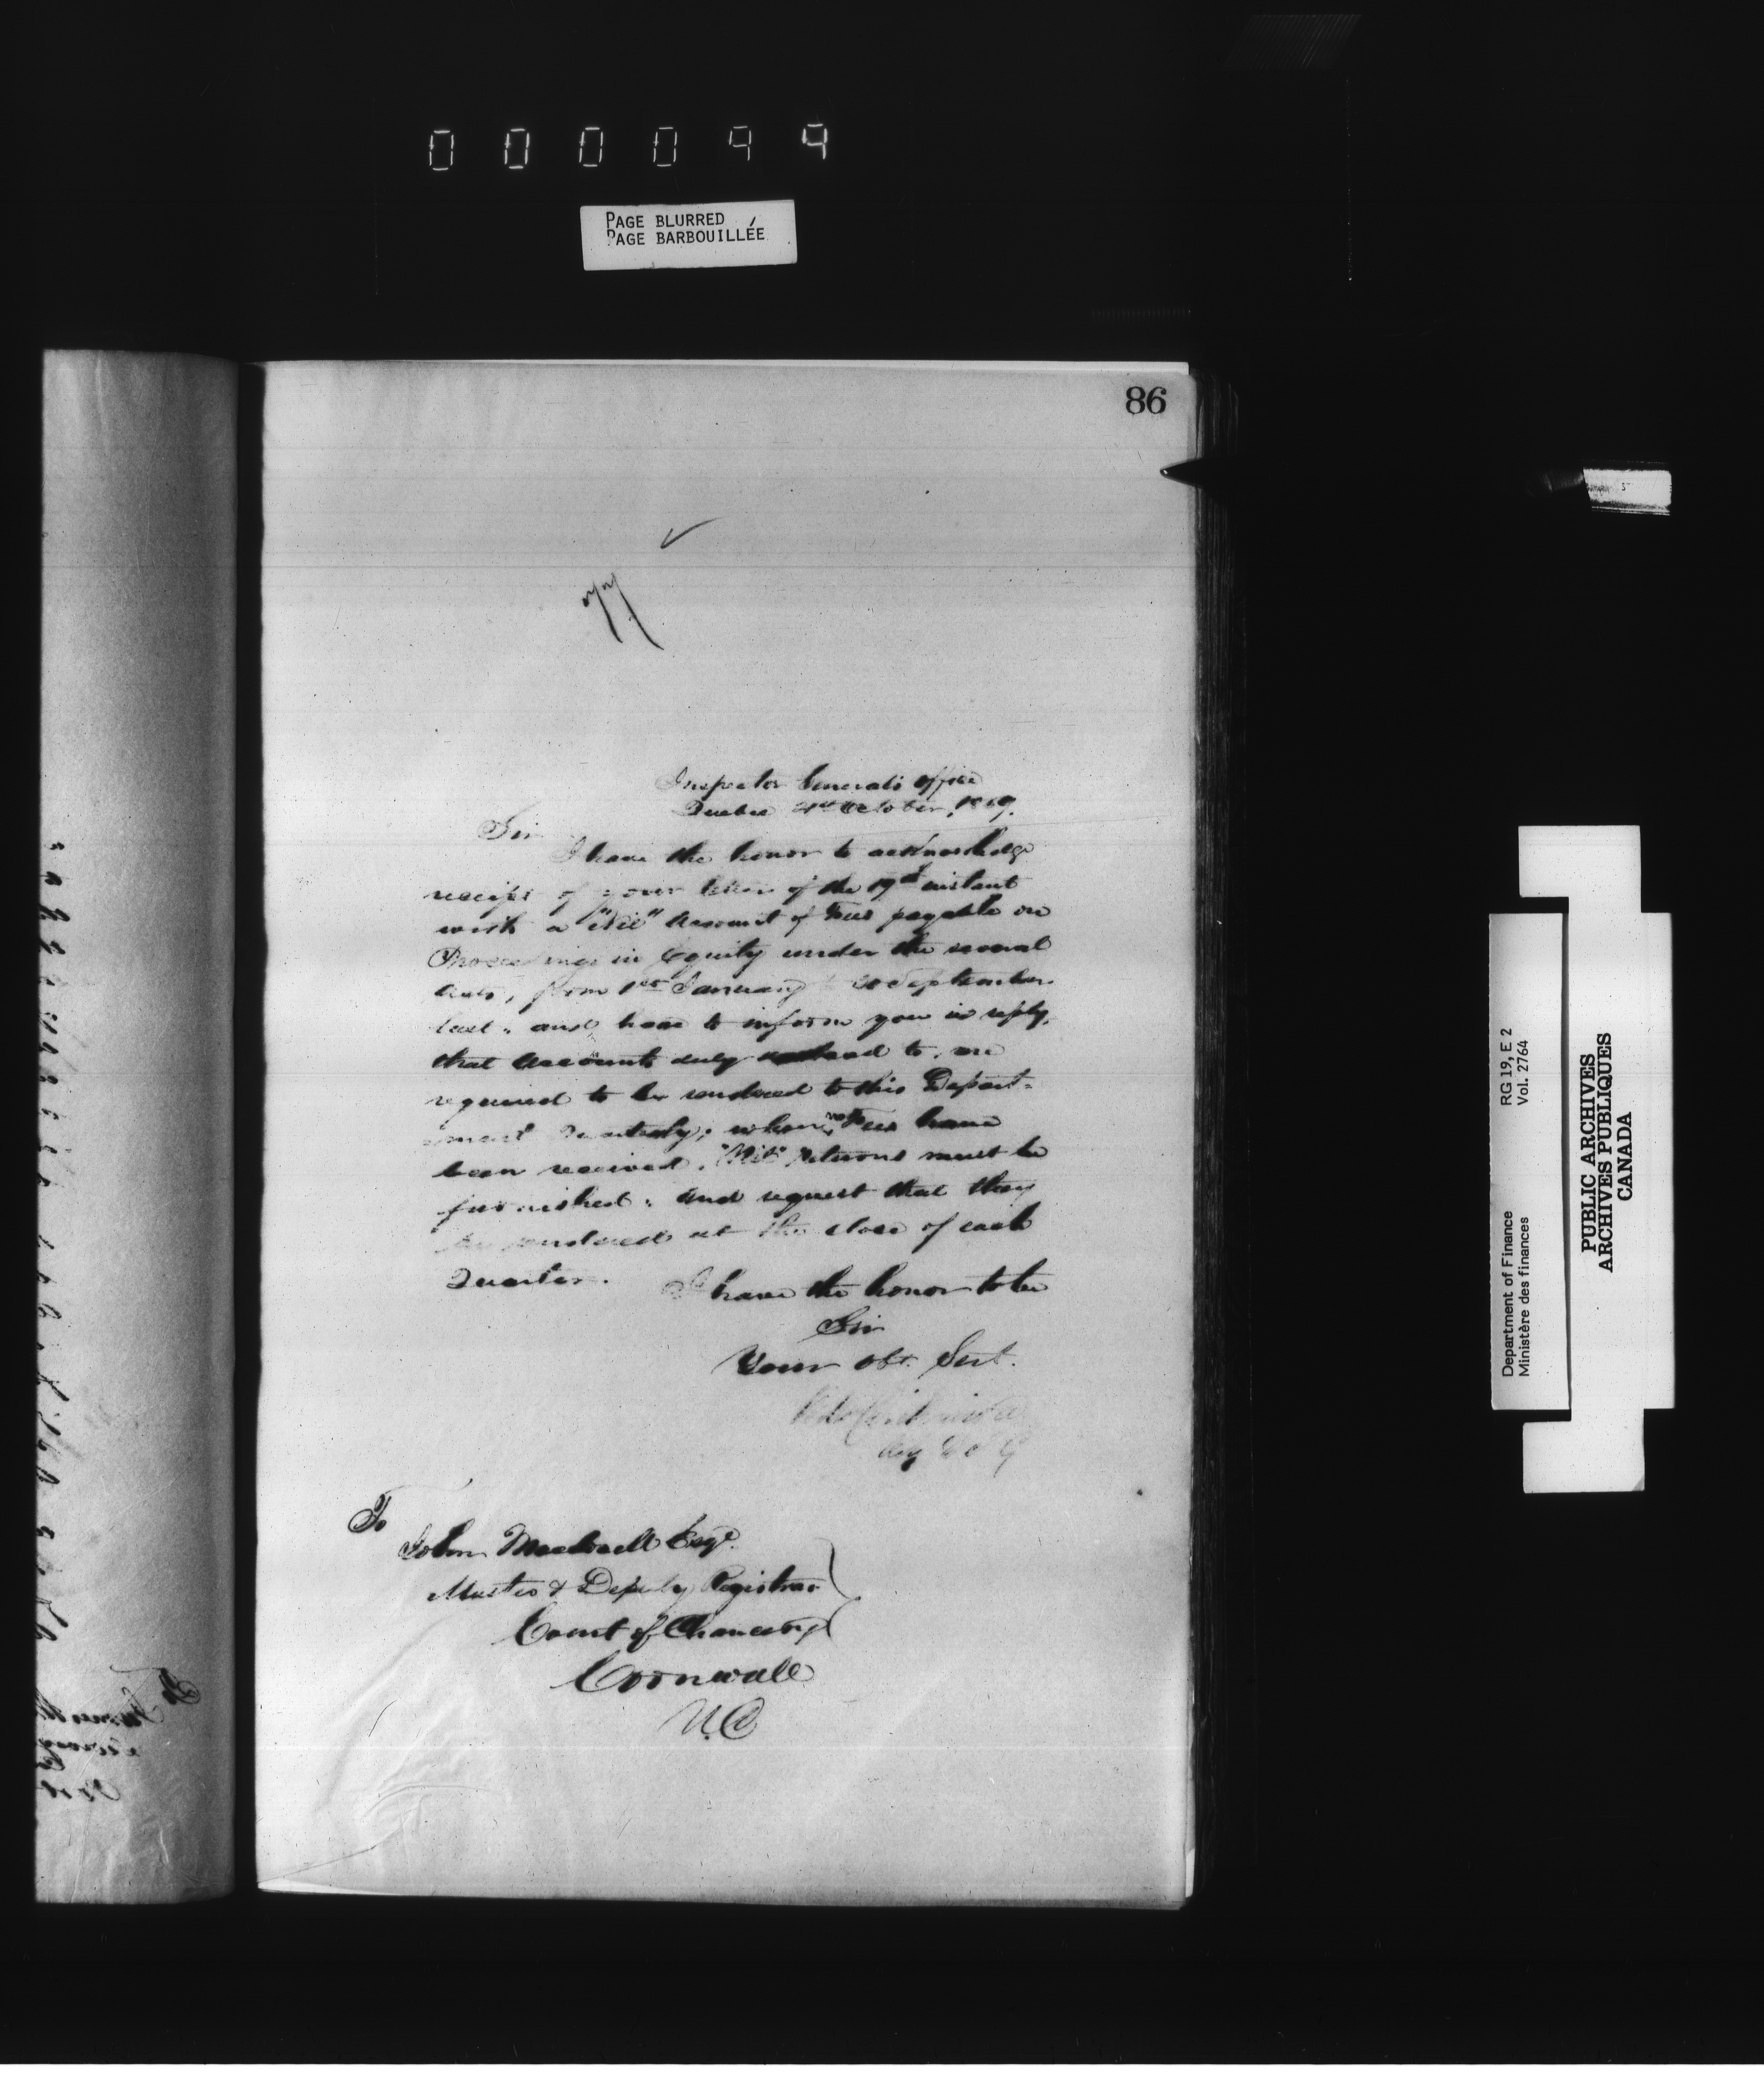 000099
PAGE BLURRED
PAGE BARBOUILLÉE
86
77
Inspector Generals Office
Quebec 21st October, 1859.
Sir
I have the honor to acknowledge
receipt of your letter of the 19th instant
with a "Nil" Account of Fees payable on
Proceedings in Equity under the several
Acts, from 1st January to 30 September
last: and have to inform you in reply,
that accounts duly to, are
required to be rendered to this Depart-
ment Quarterly; when no Fees have
been received, "Nil" returns must be
furnished: and request that they
be rendered at the close of each
Quarter.
I have the honor to be
Sir
Your Obt. Servt.
To
John Macdonell Esqe.
Master & Deputy Registrar
Court of Chancery
Cornwall
U.C
Department of Finance RG 19, E 2
Ministère des finances Vol. 2764
PUBLIC ARCHIVES
ARCHIVES PUBLIQUES
CANADA